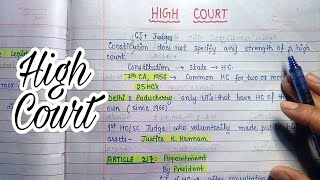 HIGH COURT
CJ + Judges
Constitution does not specify any strength of a high court.
Constitution → State → HC
7th CA, 1956 → Common HC for two or mo
max
25 HC's
Delhi & Puducherry only UT's that have HC of t
own (since 1966)
1st HC/SC Judge who voluntarily made pub
assets - Justice K. Kannan
ARTICLE 217: Appointment
By President
consultation
High
Court